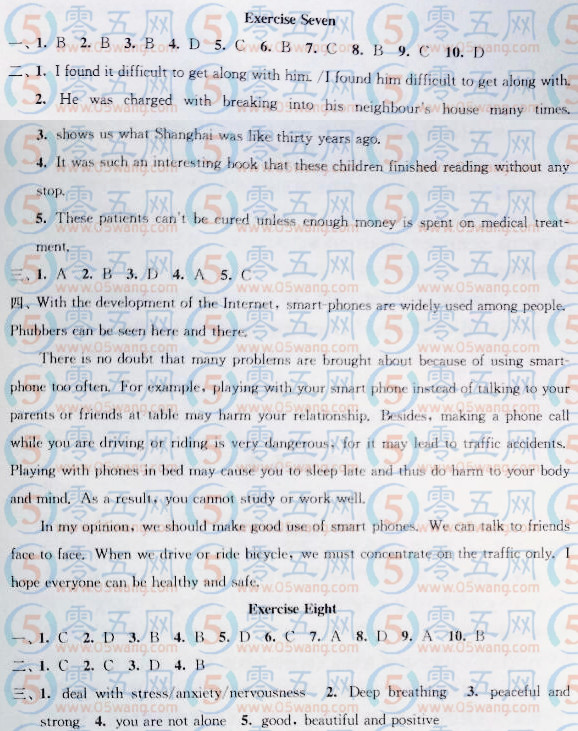 Exercise Seven
一、1. B 2. B 3. B 4. D 5. C 6. B 7. C 8. B 9. C 10. D
二、1. I found it difficult to get along with him. /I found him difficult to get along with.
2. He was charged with breaking into his neighbour's house many times.
3. shows us what Shanghai was like thirty years ago.
4. It was such an interesting book that these children finished reading without any
stop.
5. These patients can't be cured unless enough money is spent on medical treat-
ment.
三、1. A 2. B 3. D 4. A 5. C
四、With the development of the Internet, smart phones are widely used among people.
Phubbers can be seen here and there.
There is no doubt that many problems are brought about because of using smart-
phone too often. For example, playing with your smart phone instead of talking to your
parents or friends at table may harm your relationship. Besides, making a phone call
while you are driving or riding is very dangerous, for it may lead to traffic accidents.
Playing with phones in bed may cause you to sleep late and thus do harm to your body
and mind. As a result, you cannot study or work well.
In my opinion, we should make good use of smart phones. We can talk to friends
face to face. When we drive or ride bicycle, we must concentrate on the traffic only. I
hope everyone can be healthy and safe.
Exercise Eight
一、1. C 2. D 3. B 4. B 5. D 6. C 7. A 8. D 9. A 10. B
二、1. C 2. C 3. D 4. B
三、1. deal with stress/anxiety/nervousness 2. Deep breathing 3. peaceful and
strong 4. you are not alone 5. good, beautiful and positive
零五网
www.05wang.com